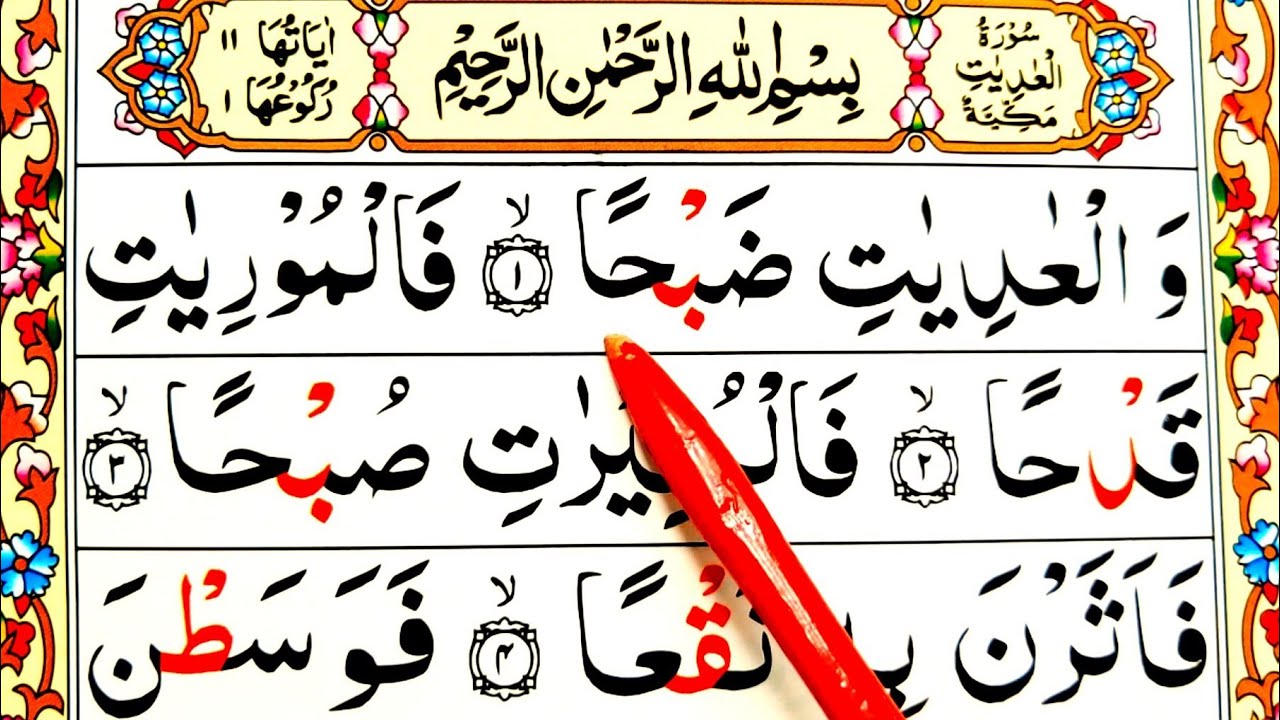 سُوْرَةُ
الْعٰدِيٰتِ
مَكِّيَّةٌ
بِسْمِ اللّٰهِ الرَّحْمٰنِ الرَّحِيْمِ
اٰيَاتُهَا ١١
رُكُوْعُهَا ١
وَالْعٰدِيٰتِ ضَبْحًا ۙ ١ فَالْمُوْرِيٰتِ
قَدْحًا ۙ ٢ صُبْحًا ۙ ٣
فَاَثَرْنَ نَقْعًا ۙ ٤ فَوَسَطْنَ